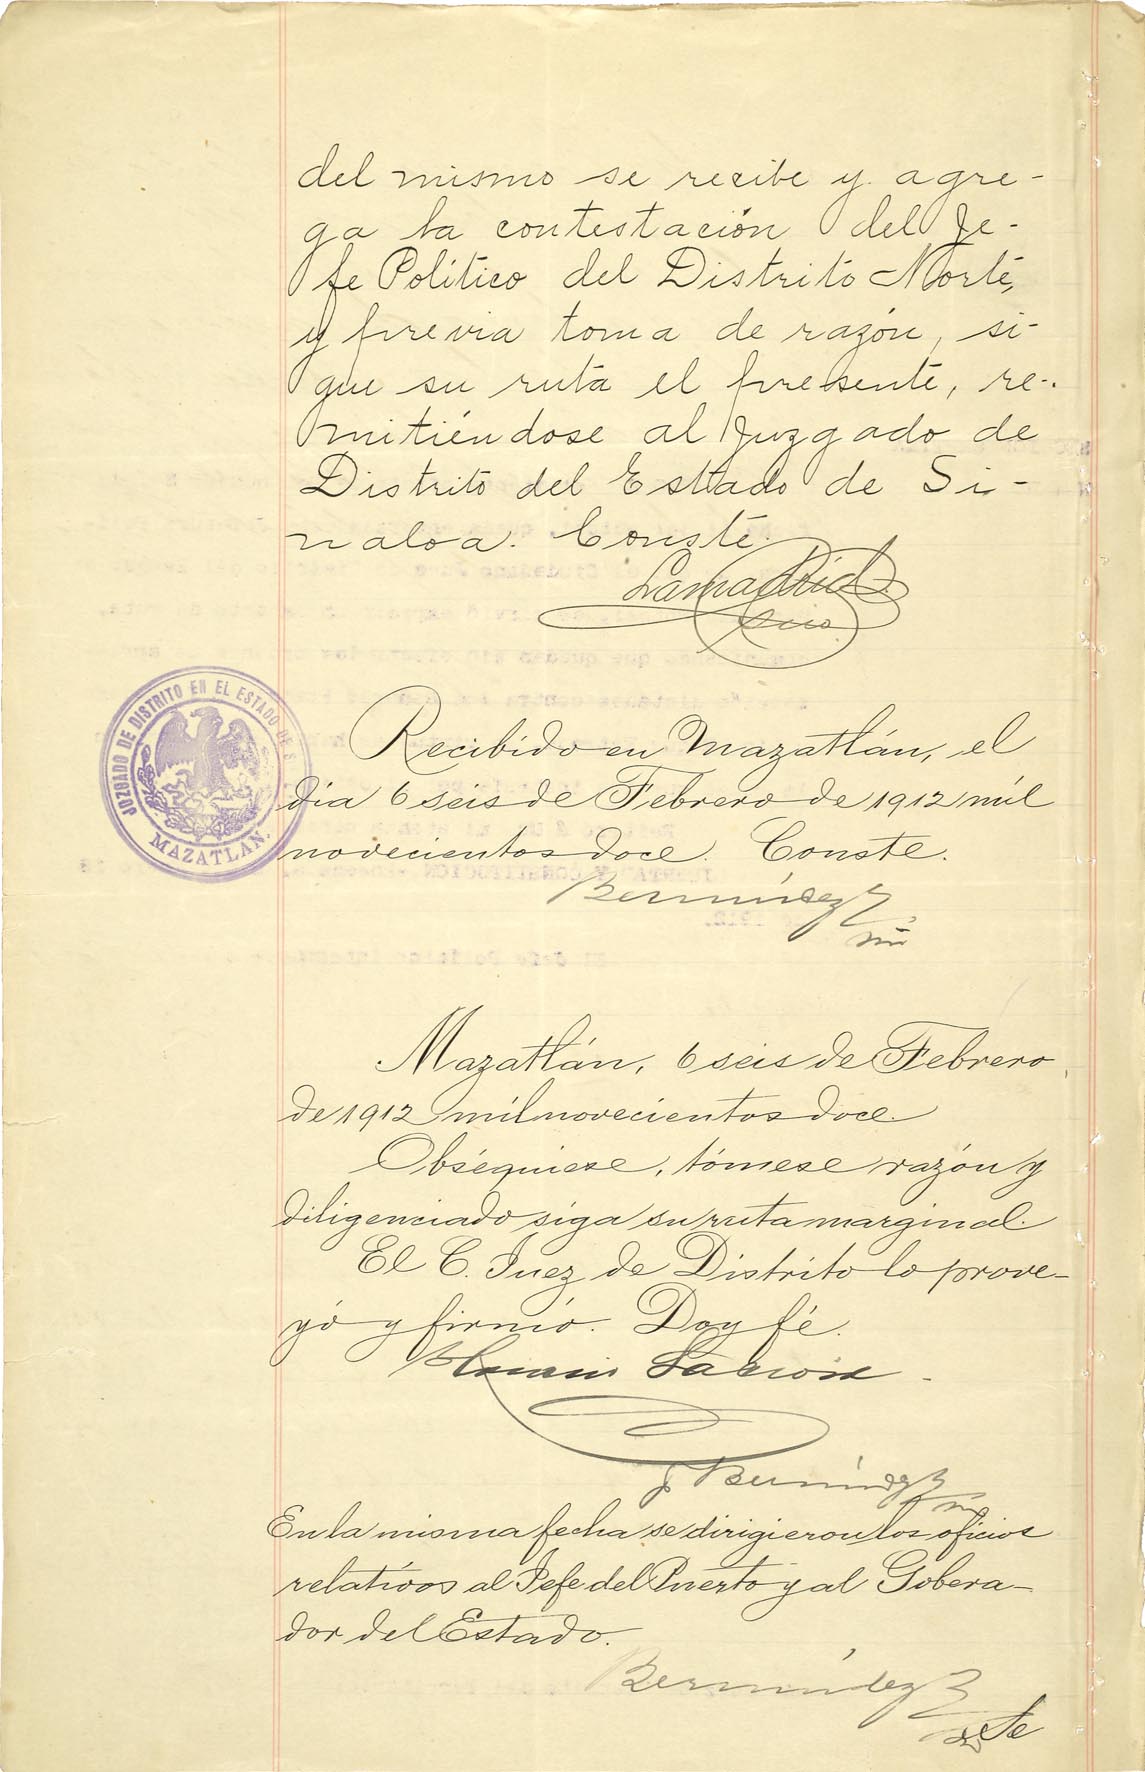 del mismo se recibe y agre-
ga la contestación del Je-
fe Político del Distrito Norte,
y previa toma de razón, si-
gue su ruta el presente, re-
mitiéndose al Juzgado de
Distrito del Estado de Si-
naloa. Conste.
Lamadrid
Srio.
JUZGADO DE DISTRITO EN EL ESTADO DE
MAZATLAN.
Recibido en Mazatlán, el
día 6 seis de Febrero de 1912 mil
novecientos doce. Conste.
Bermúdez
Mazatlán, 6 seis de Febrero
de 1912 mil novecientos doce.
Obséquiese, tómese razón y
diligenciado siga su ruta marginal.
El C. Juez de Distrito lo prove-
yó y firmó. Doy fé.
J Bermúdez
En la misma fecha se dirigieron los oficios
relativos al Jefe del Puerto y al Goberna-
dor del Estado.
Bermúdez